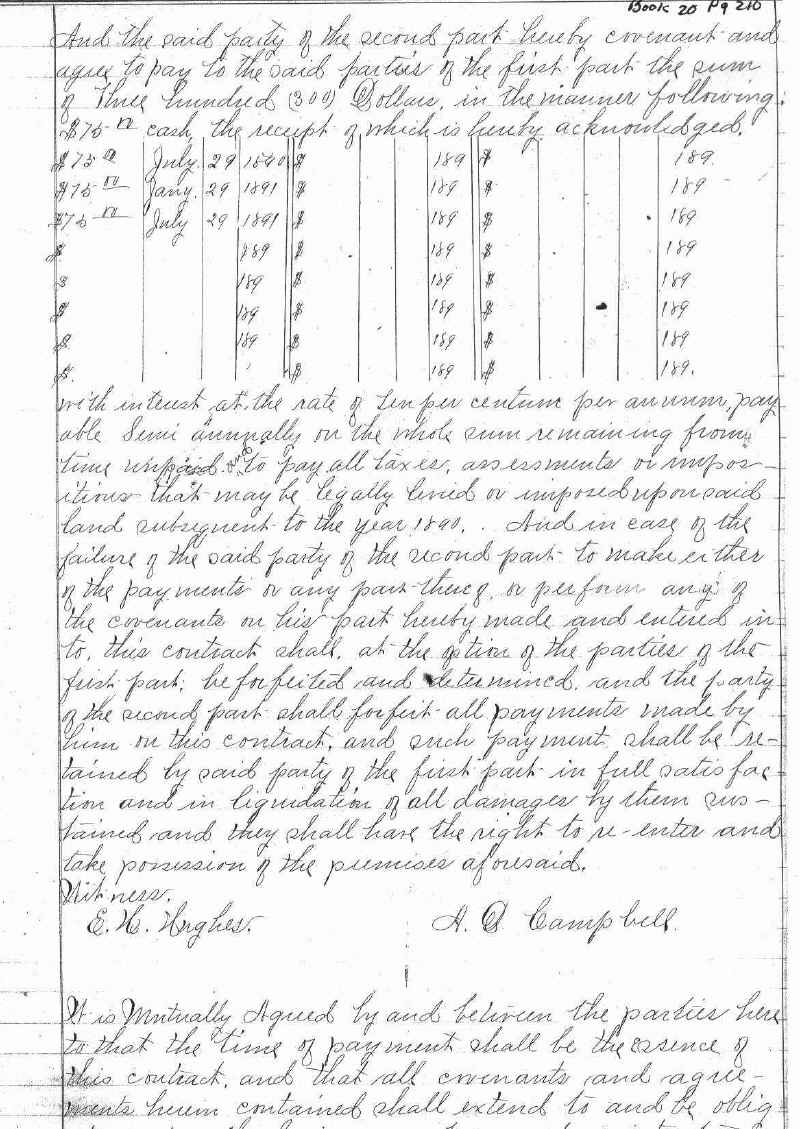 Book 20 Pg 210
And the said party of the second part hereby covenant and
agree to pay to the said parties of the first part the sum
of Three hundred (300) Dollars, in the manner following:
$75 00 cash, the receipt of which is hereby acknowledged.
$75 00 July 29 1890 $ 189 $ 189
$75 00 Jany. 29 1891 $ 189 $ 189
$75 00 July 29 1891 $ 189 $ 189
$ 189 $ 189 $ 189
$ 189 $ 189 $ 189
$ 189 $ 189 $ 189
$ 189 $ 189 $ 189
$ $ 189 $ 189.
with interest at the rate of ten per centum per annum, pay
able Semi annually on the whole sum remaining from
time unpaid and to pay all taxes, assessments or impos-
itions that may be legally levied or imposed upon said
land subsequent to the year 1890. And in case of the
failure of the said party of the second part to make either
of the payments or any part thereof, or perform any of
the covenants on his part hereby made and entered in
to, this contract shall, at the option of the parties of the
first part, be forfeited and determined, and the party
of the second part shall forfeit all payments made by
him on this contract, and such payment shall be re-
tained by said party of the first part in full satisfac-
tion and in liquidation of all damages by them sus-
tained and they shall have the right to re-enter and
take possession of the premises aforesaid.
Witness.
E. H. Hughes. A. Campbell.
It is Mutually Agreed by and between the parties here
to that the time of payment shall be the essence of
this contract, and that all covenants and agree-
ments herein contained shall extend to and be oblig